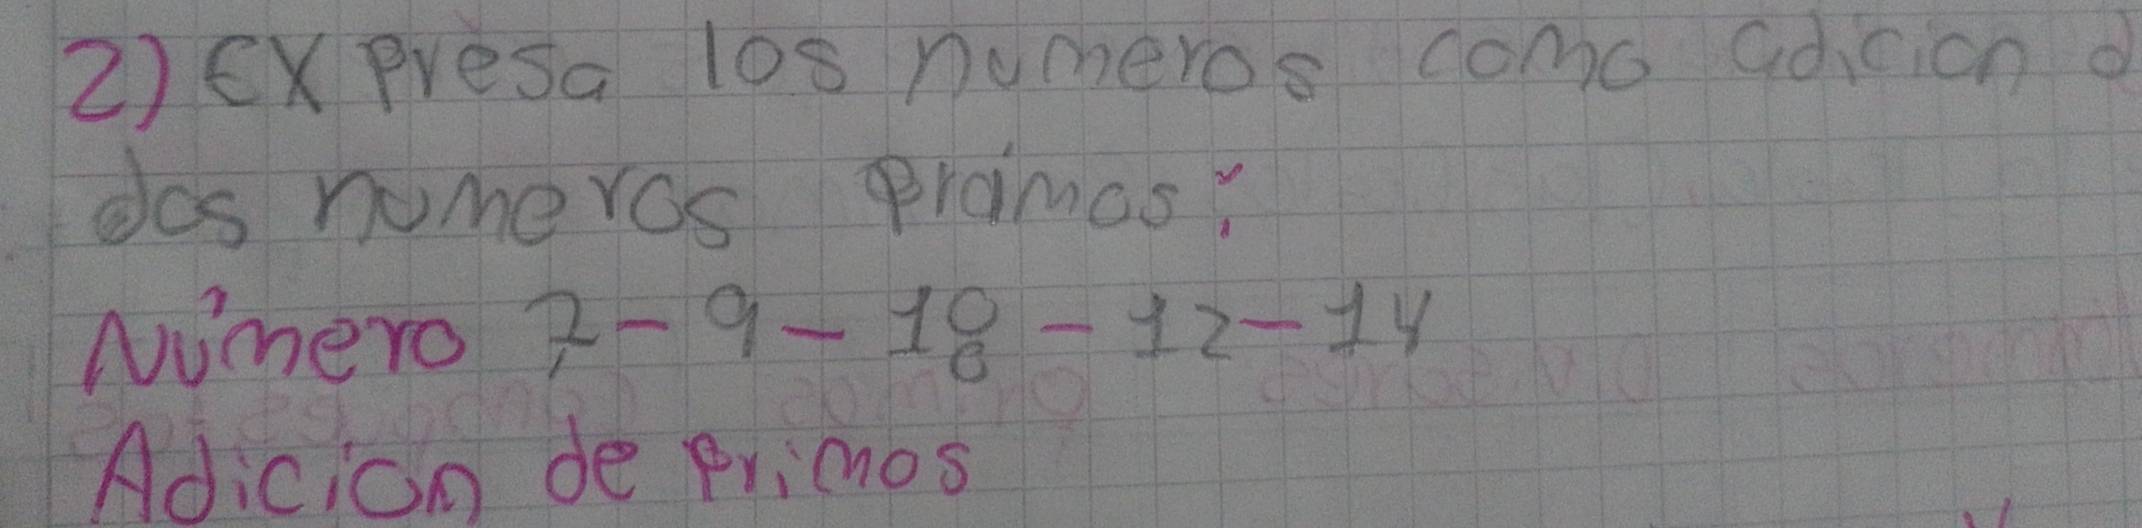 2) Expresa los numeros como adicion d
dos numeros primos:
Número 7 - 9 - 10 - 12 - 14
Adicion de primos